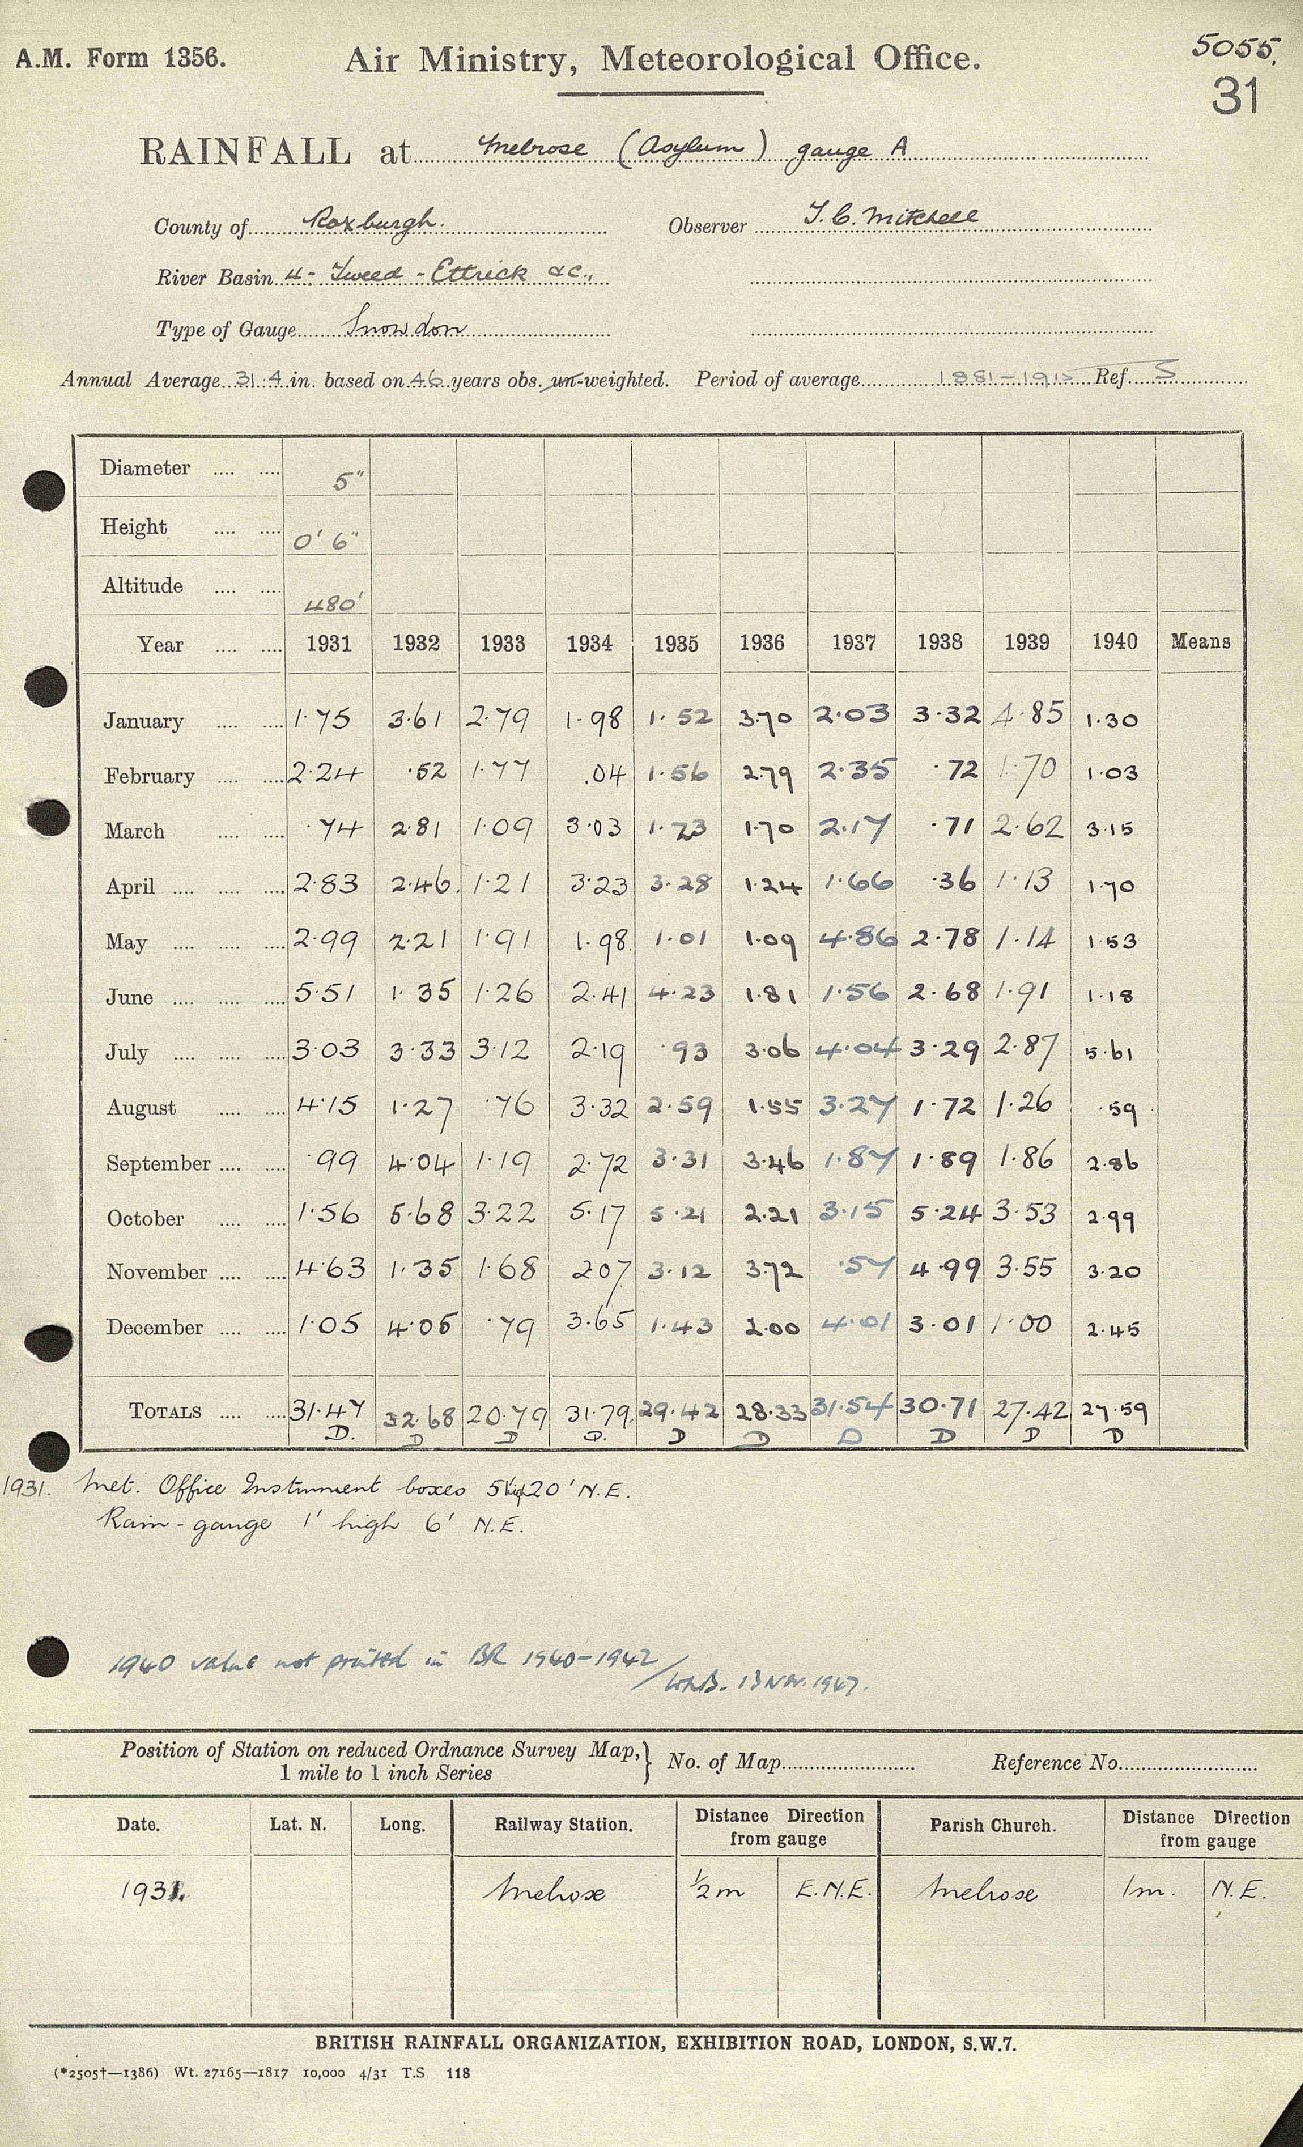 A.M. Form 1356.
Air Ministry, Meteorological Office.
5055.
31
RAINFALL at Melrose (Asylum) gauge A
County of Roxburgh. Observer J. C. Mitchell
River Basin 4:- Tweed - Ettrick &c.,
Type of Gauge Snowdon
Annual Average 31.4 in. based on 46 years obs. un-weighted. Period of average 1881-1915 Ref. S
Diameter .... .... 5"
Height .... .... 0' 6"
Altitude .... .... 480'
Year .... .... 1931 1932 1933 1934 1935 1936 1937 1938 1939 1940 Means
January .... .... 1.75 3.61 2.79 1.98 1.52 3.70 2.03 3.32 4.85 1.30
February .... .... 2.24 .52 1.77 .04 1.56 2.79 2.35 .72 1.70 1.03
March .... .... .74 2.81 1.09 3.03 1.23 1.70 2.17 .71 2.62 3.15
April .... .... .... 2.83 2.46 1.21 3.23 3.28 1.24 1.66 .36 1.13 1.70
May .... .... .... 2.99 2.21 1.91 1.98 1.01 1.09 4.86 2.78 1.14 1.53
June .... .... .... 5.51 1.35 1.26 2.41 4.23 1.81 1.56 2.68 1.91 1.18
July .... .... .... 3.03 3.33 3.12 2.19 .93 3.06 4.04 3.29 2.87 5.61
August .... .... 4.15 1.27 .76 3.32 2.59 1.55 3.27 1.72 1.26 .59
September .... .... .99 4.04 1.19 2.72 3.31 3.46 1.87 1.89 1.86 2.86
October .... .... 1.56 5.68 3.22 5.17 5.21 2.21 3.15 5.24 3.53 2.99
November .... .... 4.63 1.35 1.68 2.07 3.12 3.72 .57 4.99 3.55 3.20
December .... .... 1.05 4.05 .79 3.65 1.43 2.00 4.01 3.01 1.00 2.45
TOTALS .... .... 31.47 32.68 20.79 31.79 29.42 28.33 31.54 30.71 27.42 27.59
D. D D D. D D D D D D
1931. Met. Office Instrument boxes 20' N.E.
Rain-gauge 1' high 6' N.E.
1940 value not printed in BR 1940-1942
13 Nov. 1967.
Position of Station on reduced Ordnance Survey Map, } No. of Map Reference No.
1 mile to 1 inch Series
Date. Lat. N. Long. Railway Station. Distance Direction from gauge Parish Church. Distance Direction from gauge
1931. Melrose ½m E.N.E. Melrose 1m. N.E.
BRITISH RAINFALL ORGANIZATION, EXHIBITION ROAD, LONDON, S.W.7.
(*2505†—1386) Wt. 27165—1817 10,000 4/31 T.S 118